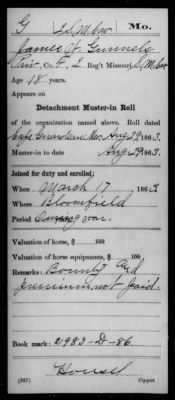 G 2 S. M. Cav. Mo.
James H. Gunnels
Priv., Co. F, 2 Reg't Missouri S. M. Cav.
Age 18 years.
Appears on
Detachment Muster-in Roll
of the organization named above. Roll dated
Cape Girardeau Mo, Aug 29, 1863.
Muster-in to date Aug 29, 1863.
Joined for duty and enrolled:
When March 17, 1863
Where Bloomfield
Period During war.
Valuation of horse, $ 100
Valuation of horse equipments, $ 100
Remarks: Bounty and
premium not paid.
Book mark: 2983-D-86.
Housel
(337) Copyist.